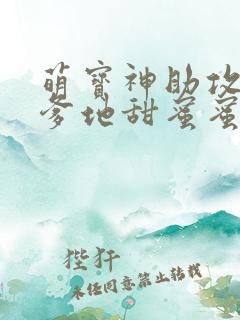 萌宝神助攻
爹地甜蜜蜜
狴犴
未经同意禁止转载